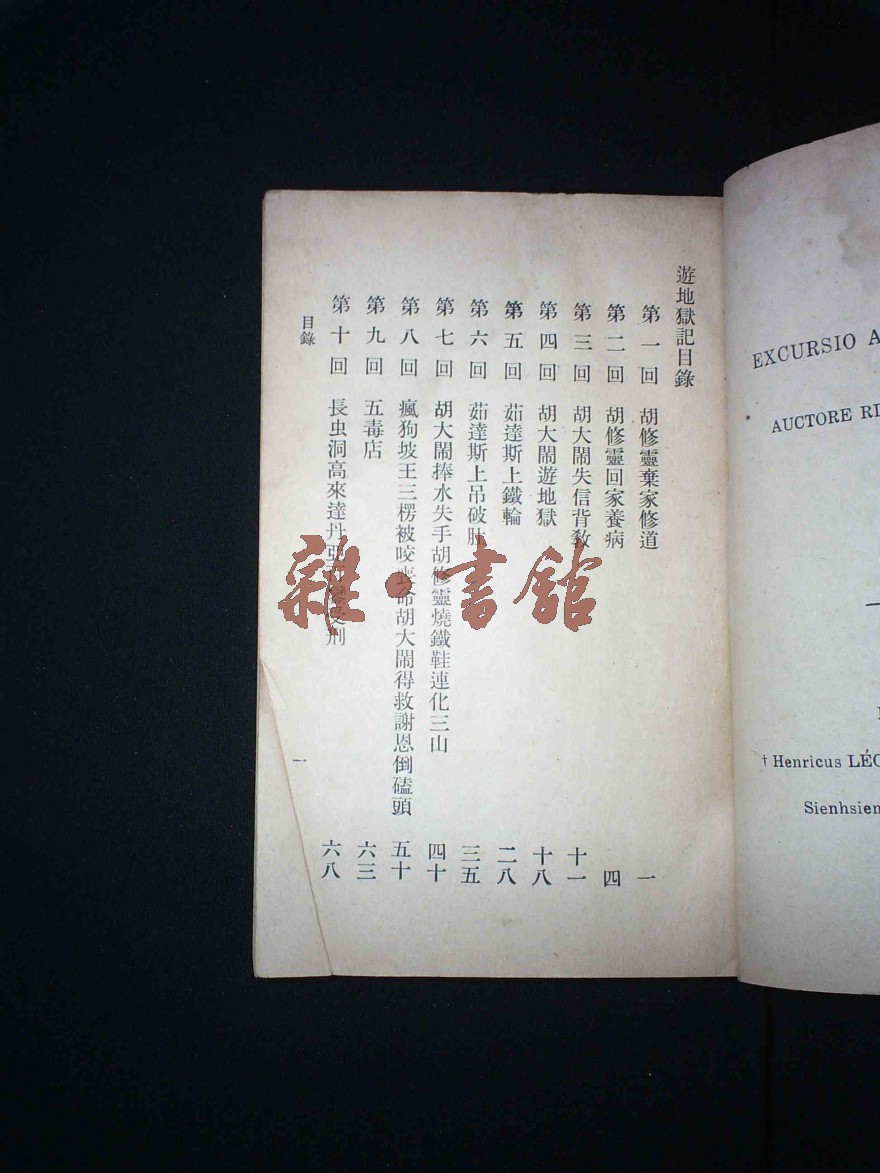 遊地獄記目錄
第一回 胡修靈棄家修道 一
第二回 胡修靈回家養病 四
第三回 胡大鬧失信背教 十一
第四回 胡大鬧遊地獄 十八
第五回 茹達斯上鐵輪 二八
第六回 茹達斯上吊破肚 三五
第七回 胡大鬧捧水失手胡修靈燒鐵鞋連化三山 四十
第八回 瘋狗坡王三楞被咬喪命胡大鬧得救謝恩倒磕頭 五十
第九回 五毒店 六三
第十回 長虫洞高來達丹亞 受刑 六八
目錄
一
雜·書館
EXCURSIO A
AUCTORE
† Henricus
Sienhsien